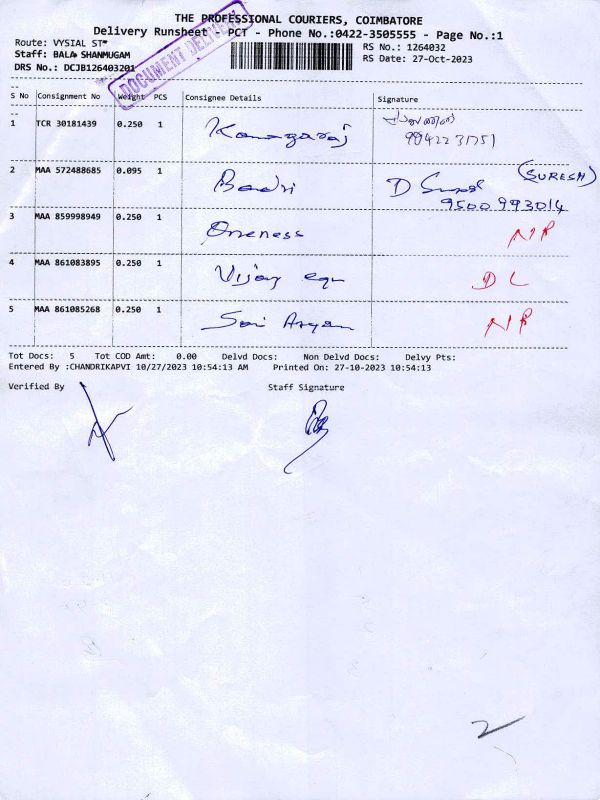 THE PROFESSIONAL COURIERS, COIMBATORE
Delivery Runsheet - PCT - Phone No.:0422-3505555 - Page No.:1
Route: VYSIAL ST*
RS No.: 1264032
Staff: BALA SHANMUGAM
RS Date: 27-Oct-2023
DRS No.: DCJB126403201
DOCUMENT DELIVERY
S No Consignment No Weight PCS Consignee Details Signature
1 TCR 30181439 0.250 1 Kanagaraj
2 MAA 572488685 0.095 1 Badri D (SURESH)
9500993014
3 MAA 859998949 0.250 1 Oneness NP
4 MAA 861083895 0.250 1 Vijay eqn DL
5 MAA 861085268 0.250 1 Sai Aryan NP
Tot Docs: 5 Tot COD Amt: 0.00 Delvd Docs: Non Delvd Docs: Delvy Pts:
Entered By :CHANDRIKAPVI 10/27/2023 10:54:13 AM Printed On: 27-10-2023 10:54:13
Verified By Staff Signature
2